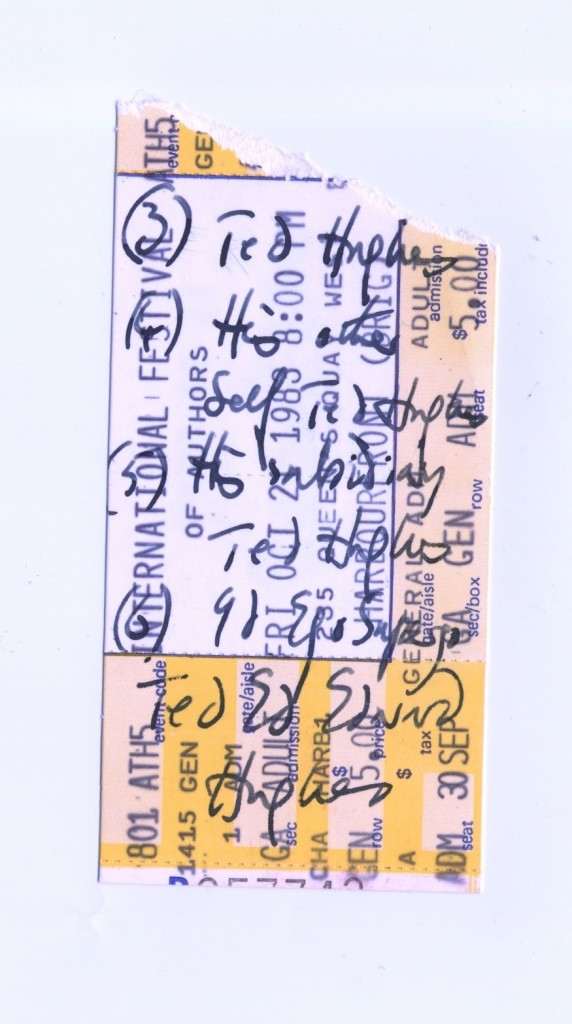 (3) Ted Hughes
(4) His other
Self Ted Hughes
(5) His subsidiary
Ted Hughes
(6) Id Ego
Ted Ed Edward
Hughes
ATH5
event
GE
INTERNATIONAL FESTIVAL
OF AUTHORS
FRI OCT 1983 8:00 PM
235 QUEENS QUAY WE
HARBOURFRONT (BRIG
GENERAL ADM ADUL
gate/aisle admission
GA GEN ADM $5.00
sec/box row seat tax include
801 ATH5
event code
1415 GEN
1 ADM
gate/aisle
GA ADUL
sec admission
CHA CHARB1
$
GEN 5.00
row price
A $
tax
ADM 30 SEP
seat